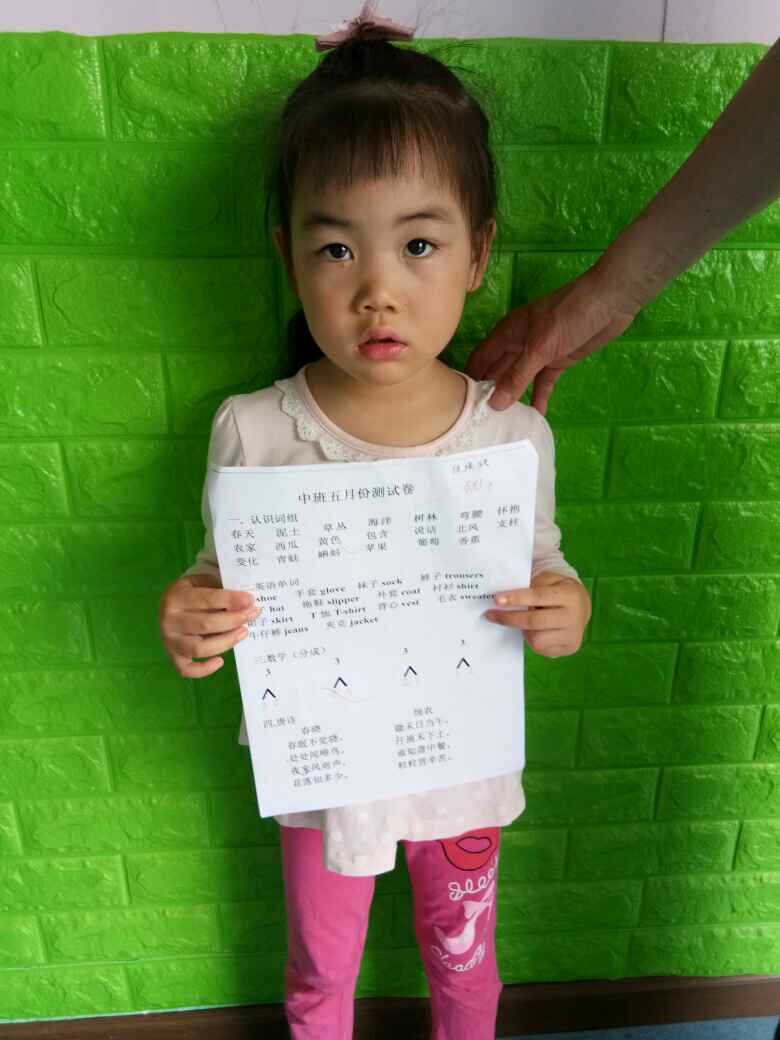 中班五月份测试卷
一、认识词组
春天 泥土 草丛 海洋 树林 弯腰 怀抱
农家 西瓜 黄色 包含 说话 北风 支柱
变化 青蛙 蝌蚪 苹果 葡萄 香蕉
英语单词
shoe 手套 glove 袜子 sock 裤子 trousers
子 hat 拖鞋 slipper 外套 coat 衬衫 shirt
裙子 skirt T 恤 T-shirt 背心 vest 毛衣 sweater
牛仔裤 jeans 夹克 jacket
三.数学（分成）
3 3 3 3
四.唐诗
春晓
春眠不觉晓，
处处闻啼鸟。
夜来风雨声，
花落知多少。
悯农
锄禾日当午，
汗滴禾下土。
谁知盘中餐，
粒粒皆辛苦。